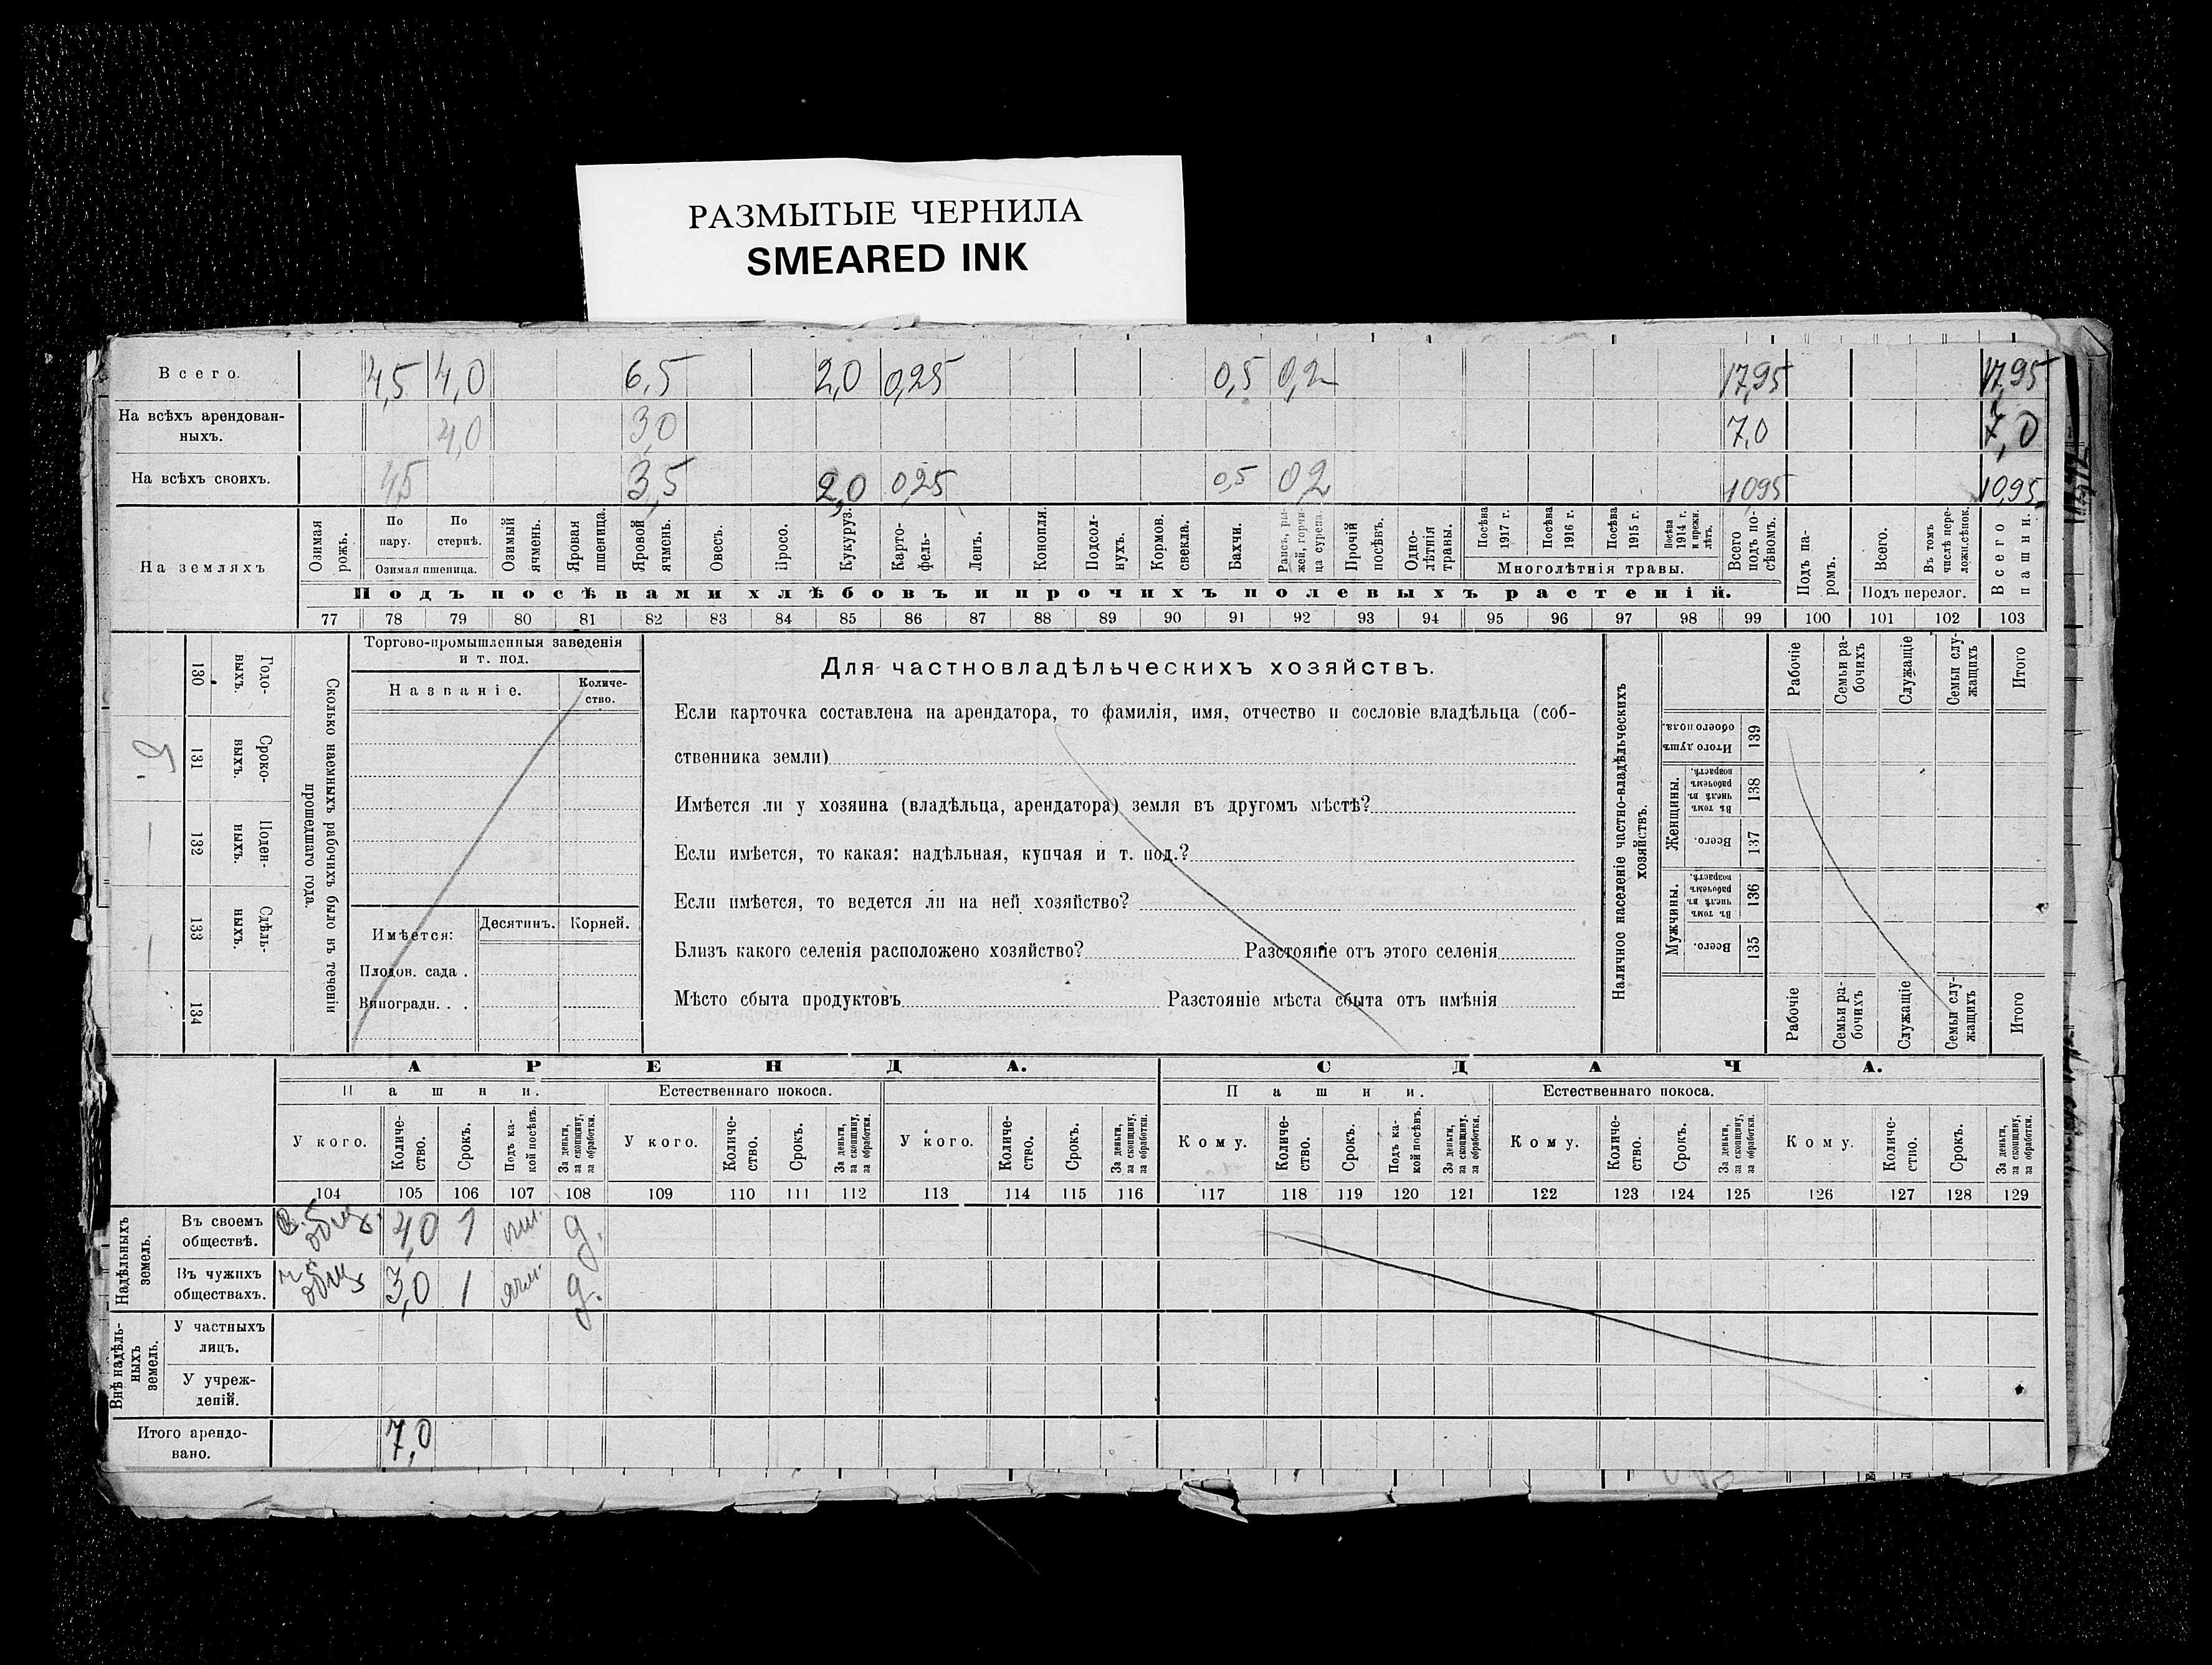 РАЗМЫТЫЕ ЧЕРНИЛА
SMEARED INK
Всего. 4,5 4,0 6,5 2,0 0,25 0,5 0,2 17,95 17,95
На всѣхъ арендован-
ныхъ. 4,0 3,0 7,0 7,0
На всѣхъ своихъ. 4,5 3,5 2,0 0,25 0,5 0,2 10,95 10,95
На земляхъ
Озимая рожь.
По пару.
По стернѣ.
Озимая пшеница.
Озимый ячмень.
Яровая пшеница.
Яровой ячмень.
Овесъ.
Просо.
Кукуруз.
Карто-
фель-
Ленъ.
Конопля.
Подсол-
нухъ.
Кормов. свекла.
Бахчи.
Рапсъ, ры-
жей, горчи-
ца сурепа.
Прочій посѣвъ.
Одно-
лѣтнія травы.
Посѣва 1917 г.
Посѣва 1916 г.
Посѣва 1915 г.
Посѣва 1914 г. и прежн. лѣтъ.
Многолѣтнія травы.
Всего подъ по-
сѣвомъ.
Подъ па-
ромъ.
Всего.
Въ томъ числѣ пере-
ложн.сѣнок.
Подъ перелог.
Всего пашни.
Подъ посѣвами хлѣбовъ и прочихъ полевыхъ растеній.
77 78 79 80 81 82 83 84 85 86 87 88 89 90 91 92 93 94 95 96 97 98 99 100 101 102 103
Годо-
выхъ.
130
Сроко-
выхъ.
131
5
Поден-
ныхъ.
132
Сдѣль-
ныхъ.
133
134
Сколько наемныхъ рабочихъ было въ теченіи
прошедшаго года.
Торгово-промышленныя заведенія
и т. под.
Названіе.
Количе-
ство.
Имѣется:
Десятинъ. Корней.
Плодов. сада .
Виноградн. . .
Для частновладѣльческихъ хозяйствъ.
Если карточка составлена на арендатора, то фамилія, имя, отчество и сословіе владѣльца (соб-
ственника земли)
Имѣется ли у хозяина (владѣльца, арендатора) земля въ другомъ мѣстѣ?
Если имѣется, то какая: надѣльная, купчая и т. под.?
Если имѣется, то ведется ли на ней хозяйство?
Близъ какого селенія расположено хозяйство? Разстояніе отъ этого селенія
Мѣсто сбыта продуктовъ Разстояніе мѣста сбыта отъ имѣнія
Наличное населеніе частно-владѣльческихъ
хозяйствъ.
Рабочіе
Семьи ра-
бочихъ
Служащіе
Семьи слу-
жащихъ
Итого
Итого душъ обоего пола.
139
Женщины.
Въ томъ числѣ въ рабочемъ возрастѣ.
138
Всего.
137
Мужчины.
Въ томъ числѣ въ рабочемъ возрастѣ.
136
Всего.
135
Рабочіе
Семьи ра-
бочихъ
Служащіе
Семьи слу-
жащихъ
Итого
АРЕНДА. СДАЧА.
Пашни. Естественнаго покоса. Пашни. Естественнаго покоса.
У кого.
Количе-
ство.
Срокъ.
Подъ ка-
кой посѣвъ.
За деньги, за скопщину, за обработки.
У кого.
Количе-
ство.
Срокъ.
За деньги, за скопщину, за обработки.
У кого.
Количе-
ство.
Срокъ.
За деньги, за скопщину, за обработки.
Кому.
Количе-
ство.
Срокъ.
Подъ ка-
кой посѣвъ.
За деньги, за скопщину, за обработки.
Кому.
Количе-
ство.
Срокъ.
За деньги, за скопщину, за обработки.
Кому.
Количе-
ство.
Срокъ.
За деньги, за скопщину, за обработки.
104 105 106 107 108 109 110 111 112 113 114 115 116 117 118 119 120 121 122 123 124 125 126 127 128 129
Надѣльныхъ
земель.
Въ своемъ
обществѣ. 4,0 1 пш. д.
Въ чужихъ
обществахъ. 3,0 1 ячм. д.
Внѣ надѣль-
ныхъ
земель.
У частныхъ
лицъ.
У учреж-
деній.
Итого арендо-
вано. 7,0